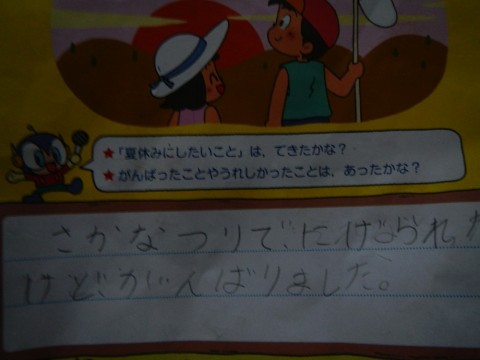 ★「夏休みにしたいこと」は、できたかな?
★がんばったことやうれしかったことは、あったかな?
さかなつりで、にげられた
けど、がんばりました。